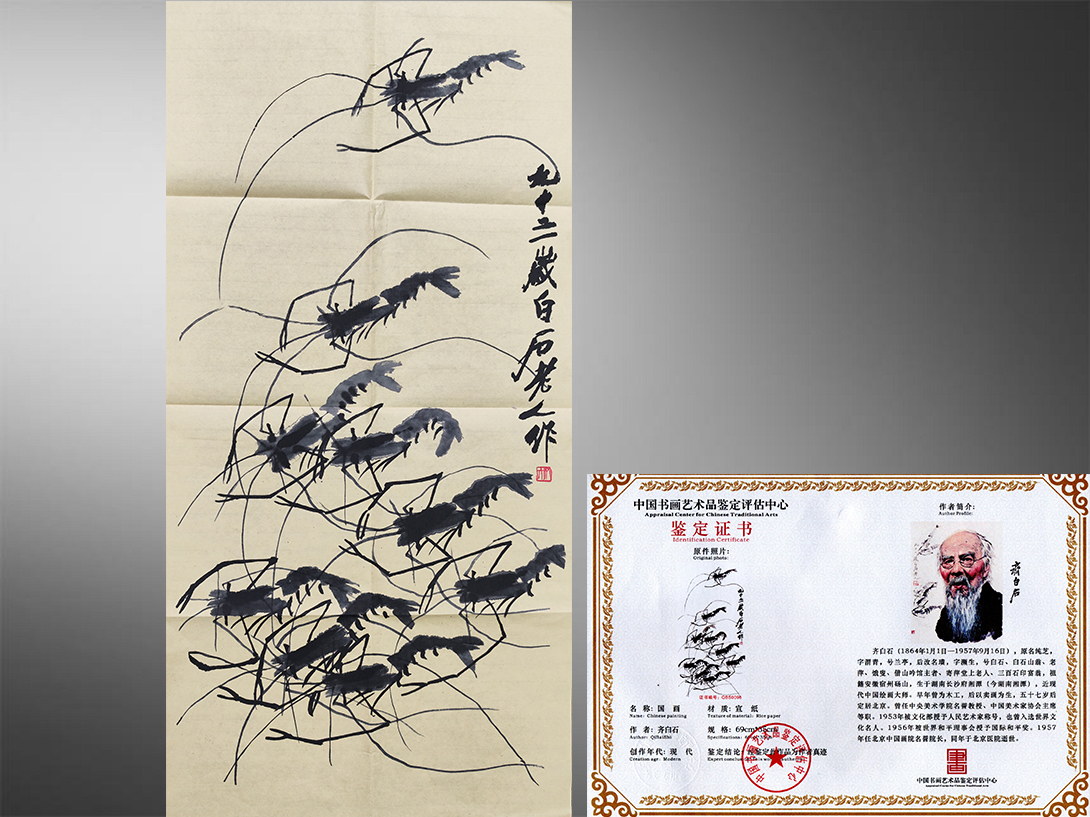 九十二岁白石老人作
中国书画艺术品鉴定评估中心
Appraisal Center for Chinese Traditional Arts
鉴定证书
Identification Certificate
原件照片:
Original photo:
九十二岁白石老人作
名 称: 国 画
Name: Chinese painting
材 质: 宣 纸
Texture of material: Rice paper
作 者: 齐白石
Author: QiBaiShi
规 格:
Specifications:
创作年代: 现 代
Creation age: Modern
鉴定结论:
作者简介:
Author Profile:
齐白石
齐白石（1864年1月1日—1957年9月16日），原名纯芝，
字渭青，号兰亭，后改名璜，字濒生，号白石、白石山翁、老
萍、饿叟、借山吟馆主者、寄萍堂上老人、三百石印富翁，祖
籍安徽宿州砀山，生于湖南长沙府湘潭（今湖南湘潭），近现
代中国绘画大师。早年曾为木工，后以卖画为生，五十七岁后
定居北京。曾任中央美术学院名誉教授、中国美术家协会主席
等职。1953年被文化部授予人民艺术家称号，也曾入选世界文
化名人。1956年被世界和平理事会授予国际和平奖。1957
年任北京中国画院名誉院长，同年于北京医院逝世。
中国书画艺术品鉴定评估中心
Appraisal Center for Chinese Traditional Arts